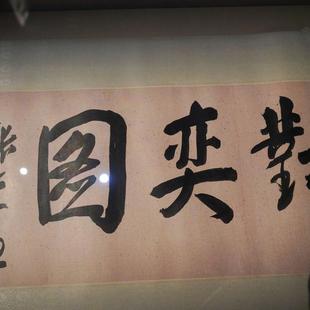 對奕图